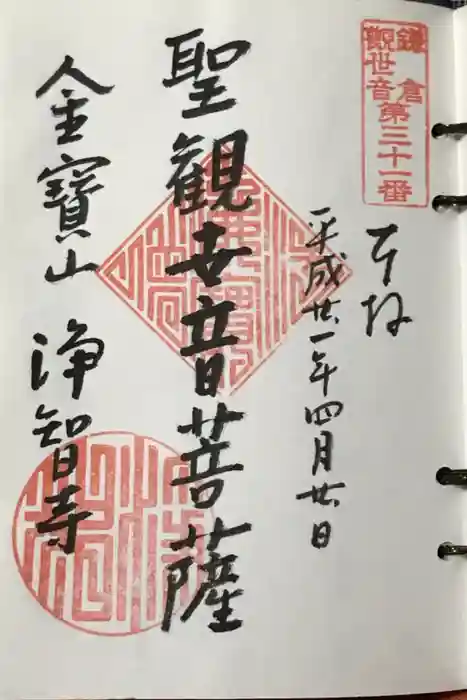 鎌倉
觀世音
第三十一番
奉拝
平成廿一年四月廿日
聖観世音菩薩
金寶山 浄智寺